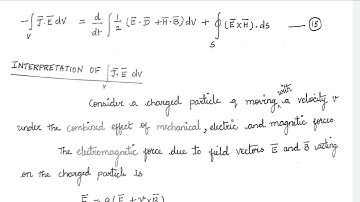 -∫_V J̅.E̅ dV = d/dt ∫_V ½ (E̅.D̅ + H̅.B̅) dV + ∮_S (E̅xH̅).ds — (15)
INTERPRETATION OF ∫_V J̅.E̅ dV
Consider a charged particle q moving with a velocity v
under the combined effect of mechanical, electric and magnetic forces
The electromagnetic force due to field vectors E̅ and B̅ acting
on the charged particle is
F̅ = q (E̅ + v×B̅)